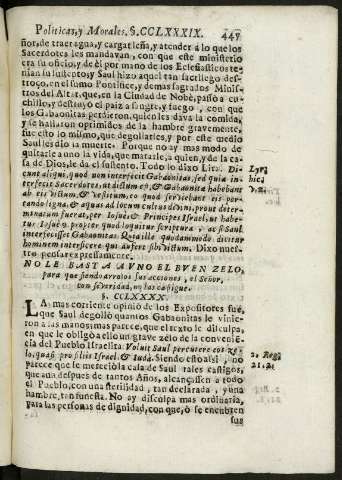 Politicas, y Morales. §. CCLXXXIX. 447
ñor, de traer agua, y cargar leña, y atender á lo que los
Sacerdotes les mandavan, con que este ministerio
era su oficio, y de él por mano de los Eclesiasticos te-
nian su sustento, y Saul hizo aquel tan sacrilego des-
troço, en el sumo Pontifice, y demas sagrados Minis-
tros del Altar, que, en la Ciudad de Nobé, passó a cu-
chillo, y destruyó el pais a sangre, y fuego, con que
los Gabaonitas perdieron, quien les dava la comida,
y se hallaron oprimidos de la hambre gravemente,
fue esto lo mismo, que degollarles, y por este medio
Saul les dio la muerte. Porque no ay mas modo de
quitarle a uno la vida, que matarle, a quien, y de la ca-
sa de Dios, le da el sustento. Todo lo dixo Lira. Di-
cunt aliqui, quod non interfecit Gabaonitas, sed quia in-
terfecit Sacerdotes, ut dictum est, & Gabaonitæ habebant
ab eis victum, & vestitum, eo quod serviebant eis por-
tando ligna, & aquas ad locum cultus divini, prout deter-
minatum fuerat, per Iosué, & Principes Israel, ut habe-
tur Iosué propter quod loquitur scriptura, ac si Saul
interfecisset Gabaonitas. Qui ille quodammodo dicitur
hominem interficere qui aufert sibi victum. Dixo nues-
tro pensar expressamente.
Lyr.
hic,
NO LE BASTA A VNO EL BVEN ZELO,
para que siendo arrojos sus acciones, el Señor,
con severidad, no las castigue.
§. CCLXXXX.
LA mas corriente opinió de los Expositores fue,
que Saul degolló quantos Gabaonitas le vinie-
ron a las manos; mas parece, que el texto le disculpa,
en que le obligó a ello un grave zelo de la convenié-
cia del Pueblo Israelita: Voluit Saul percutere eos ze-
lo, quasi pro filiis Israel, & Iuda. Siendo esto assi, no
parece que le merecia la casa de Saul tales castigos,
que aun despues de tantos Años, alcançassen a todo
el Pueblo, con una esterilidad, tan declarada, y una
hambre, tan funesta. No ay disculpa mas ordinaria,
para las personas de dignidad, con que, ó se encubren
2. Reg.
21. 21
sus